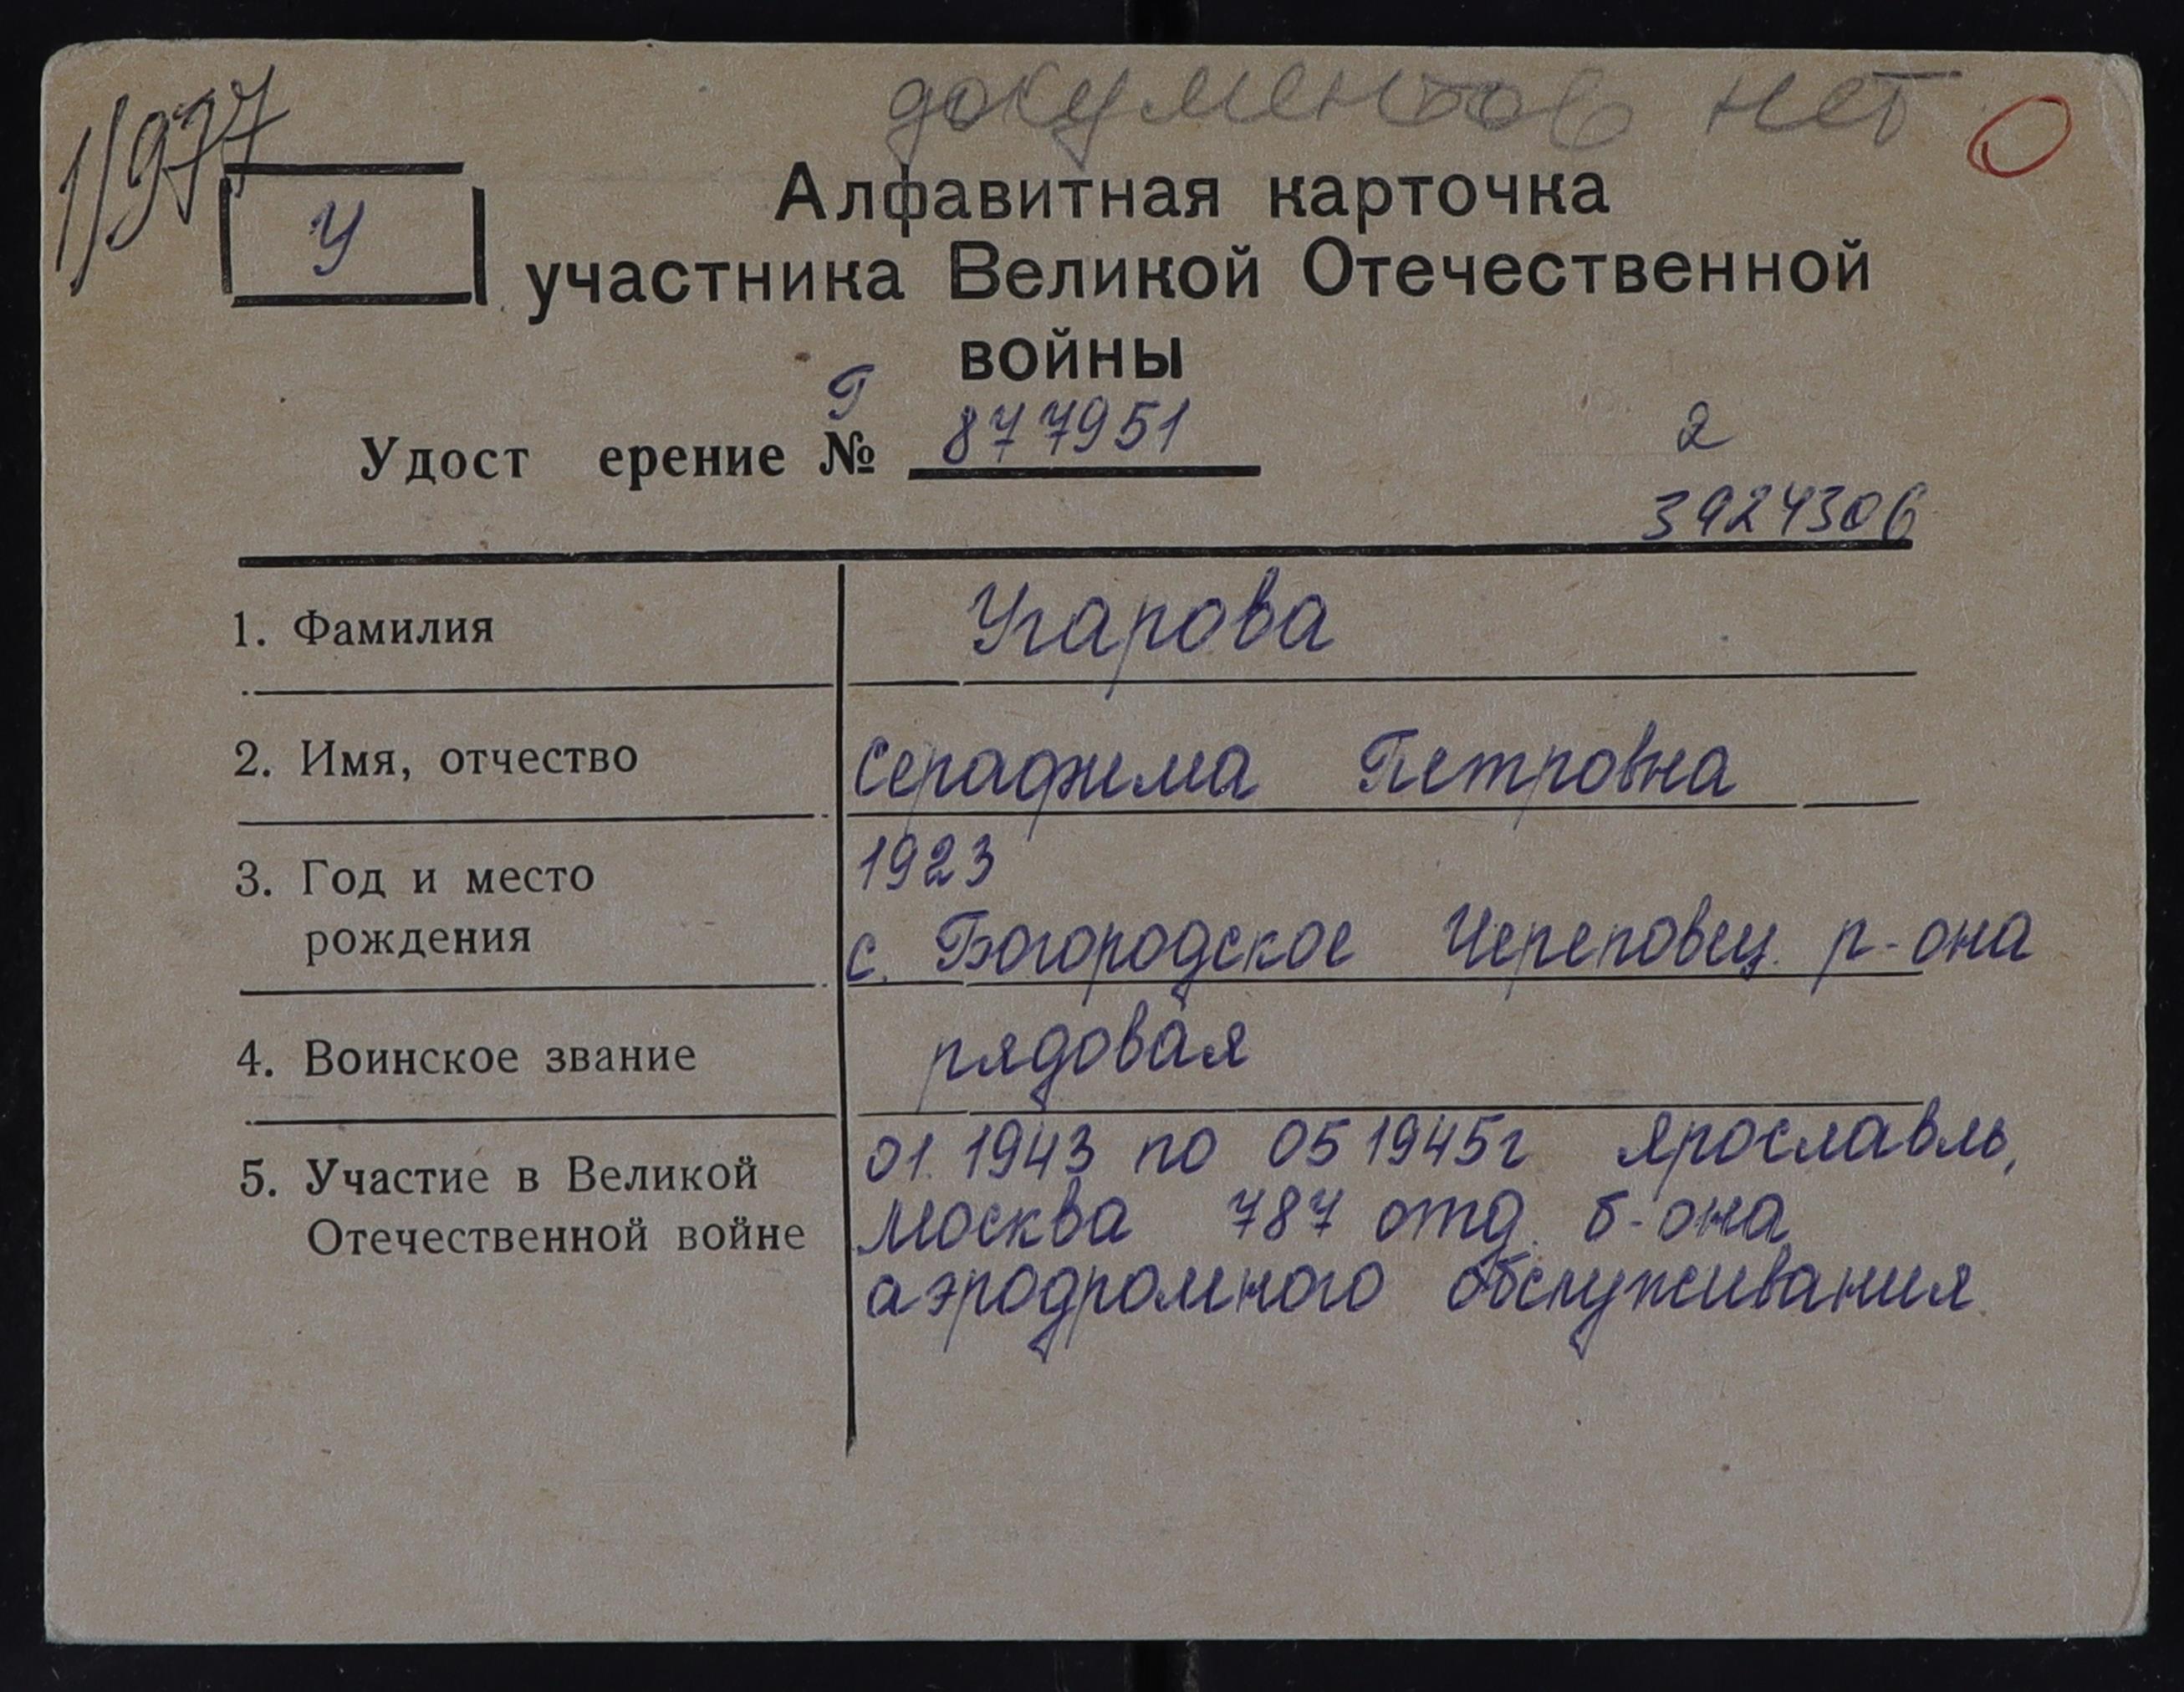 документов нет
1/977
У
Алфавитная карточка
участника Великой Отечественной
войны
Г
Удост ерение № 877951
2
3924306
1. Фамилия
Угарова
2. Имя, отчество
Серафима Петровна
3. Год и место
рождения
1923
с. Богородское Череповец. р-она
4. Воинское звание
рядовая
5. Участие в Великой
Отечественной войне
01.1943 по 05 1945г Ярославль,
Москва 787 отд. б-она
аэродромного обслуживания